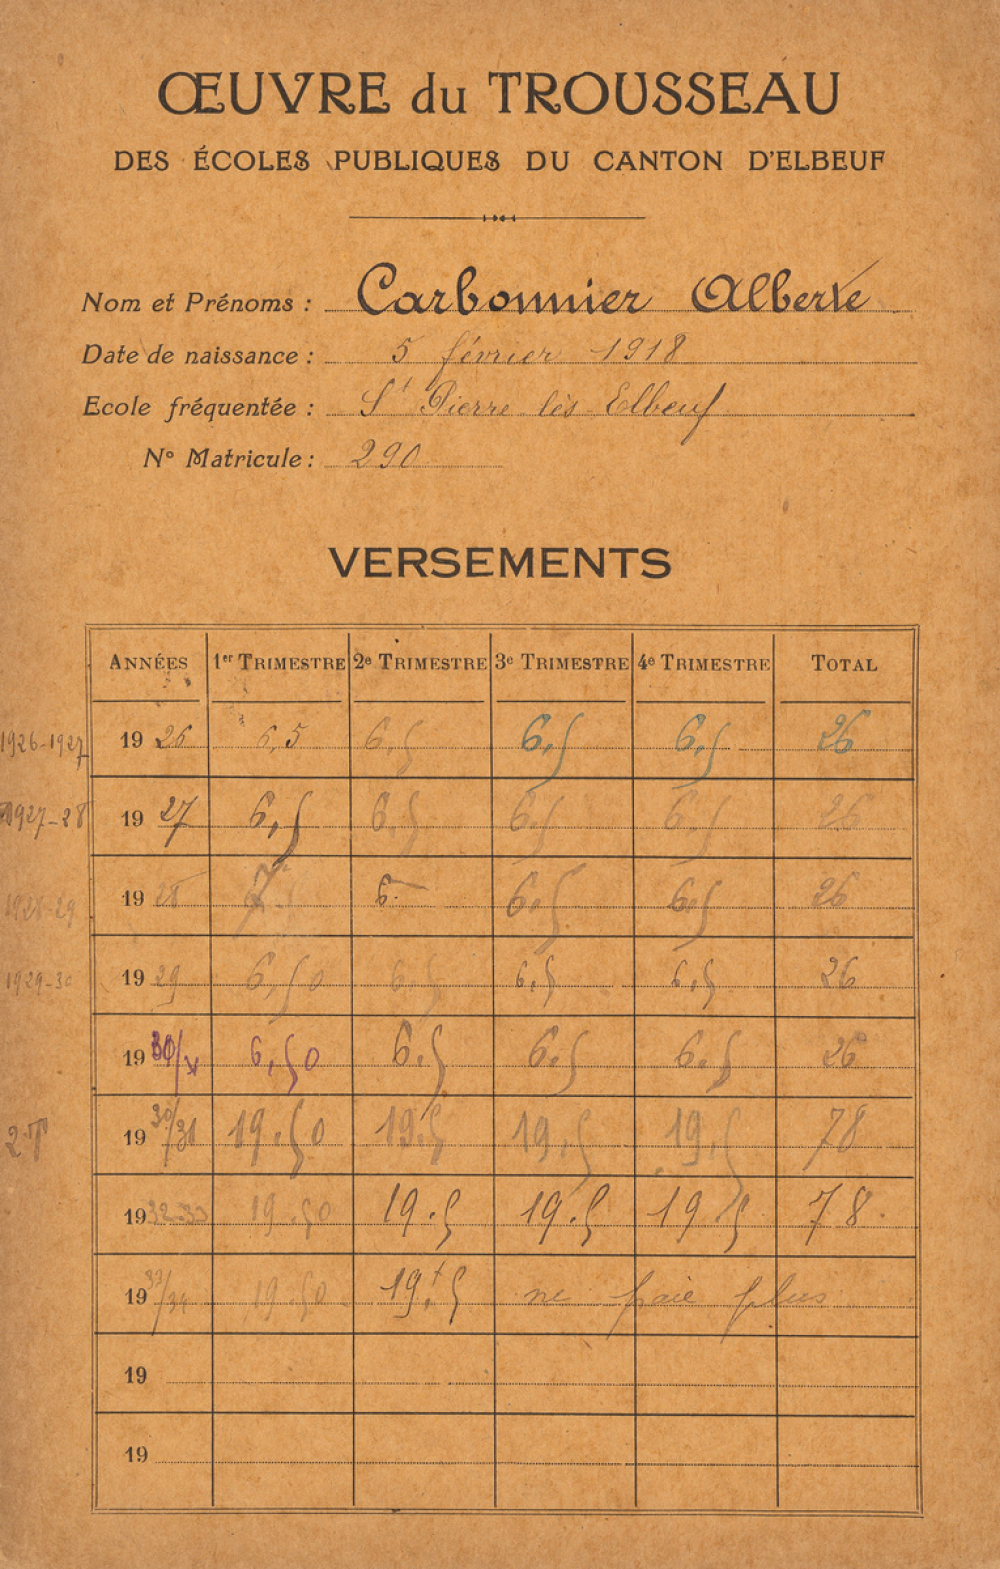 ŒUVRE du TROUSSEAU
DES ÉCOLES PUBLIQUES DU CANTON D'ELBEUF
Nom et Prénoms : Carbonnier Alberte
Date de naissance : 5 février 1918
Ecole fréquentée : St Pierre lès Elbeuf
N° Matricule : 290
VERSEMENTS
ANNÉES 1er TRIMESTRE 2e TRIMESTRE 3e TRIMESTRE 4e TRIMESTRE TOTAL
1926-1927 1926 6,5 6,5 6,5 6,5 26
1927-28 1927 6,5 6,5 6,5 6,5 26
1928-29 1928 7 6. 6,5 6,5 26
1929-30 1929 6,50 6,5 6,5 6,5 26
1930/X 6,50 6.5 6.5 6.5 26
2.T 19 30/31 19.50 19.5 19.5 19.5 78
1932-33 19.50 19.5 19.5 19.5 78.
19 33/34 19.50 19f.5 ne paie plus
19
19